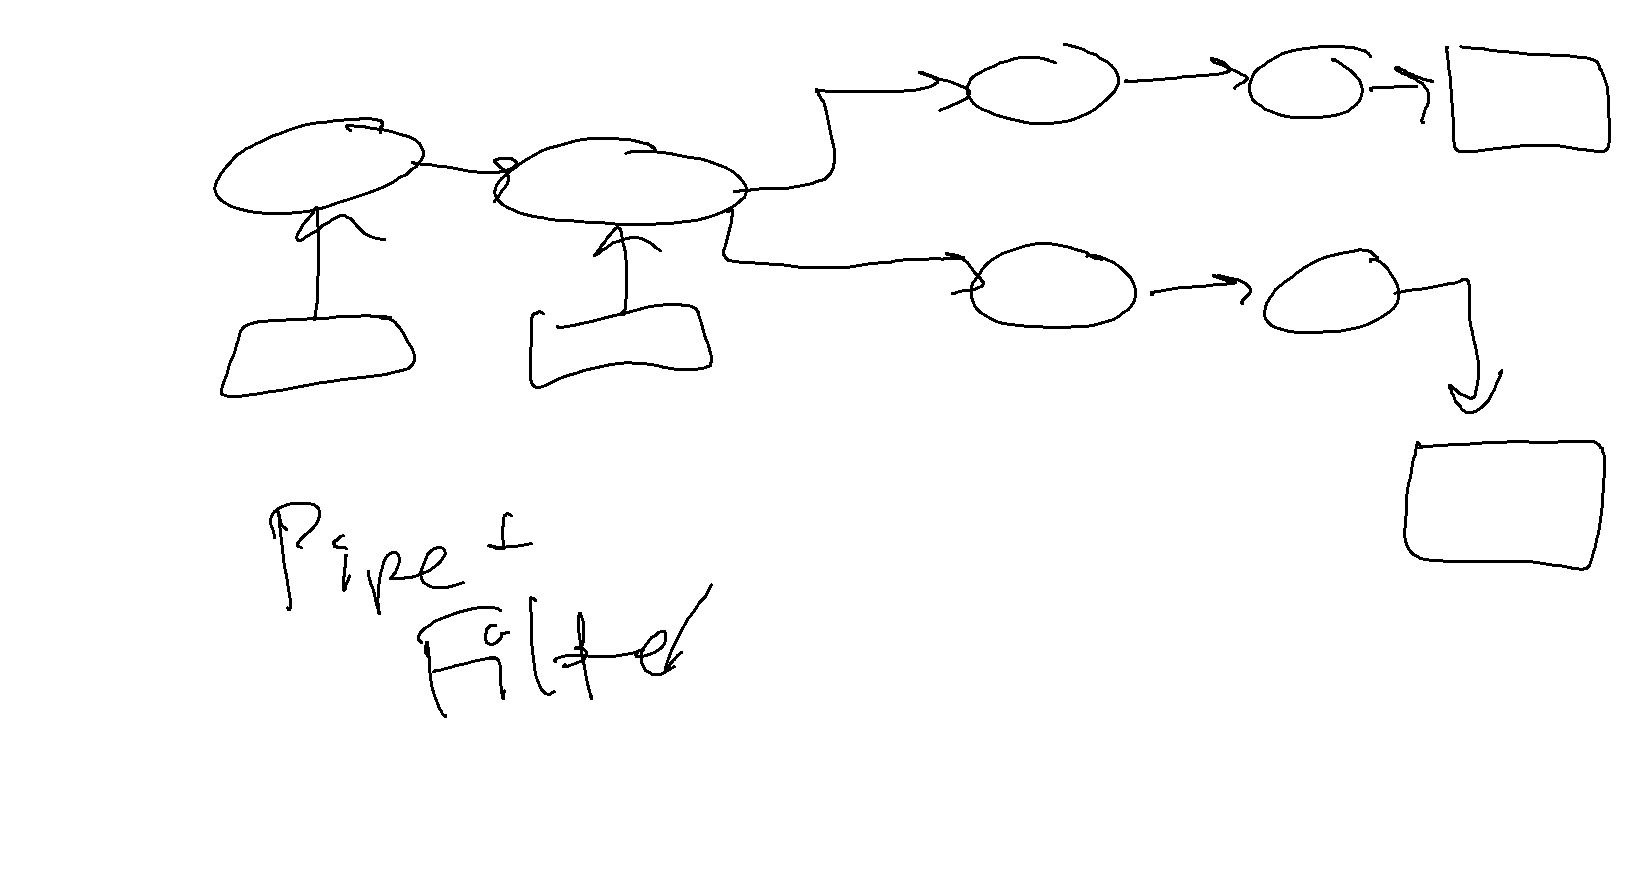 Pipe +
Filter